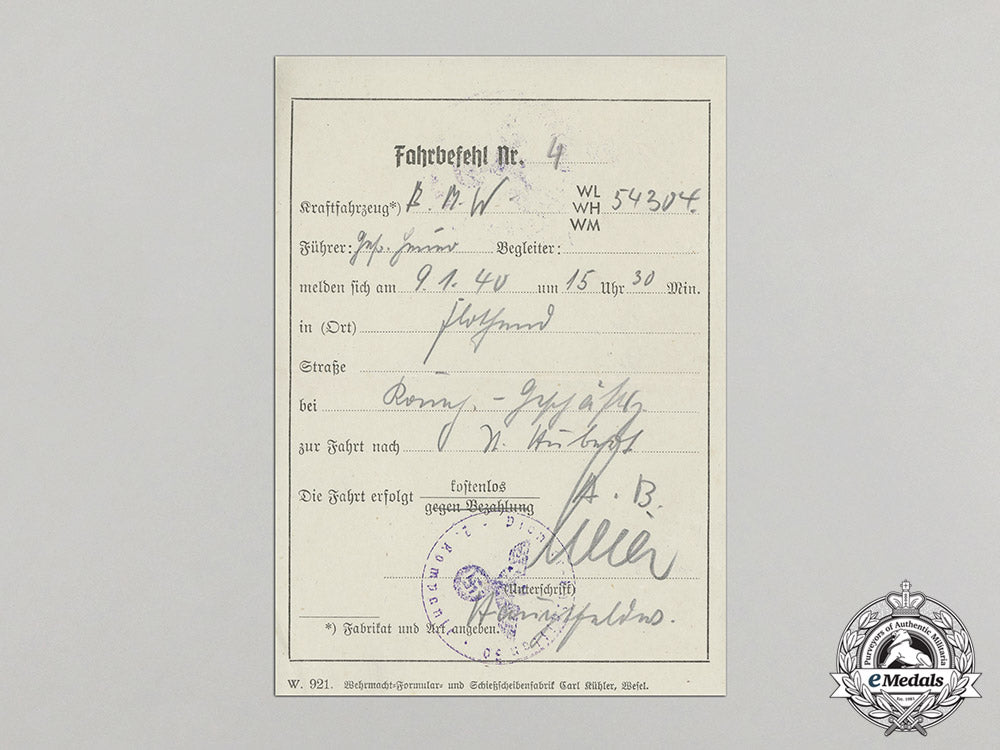 Fahrbefehl Nr. 4
Kraftfahrzeug*) B.M.W WL
WH 54304.
WM
Führer: Gefr. Begleiter:
melden sich am 9.1.40 um 15 Uhr 30 Min.
in (Ort)
Straße
bei Komp. - Geschäftsz.
zur Fahrt nach St. Hubert
Die Fahrt erfolgt kostenlos
gegen Bezahlung
A. B.
Meier
(Unterschrift)
Hauptfeldw.
*) Fabrikat und Art angeben.
2. Kompanie
W. 921. Wehrmacht-Formular- und Schießscheibenfabrik Carl Kühler, Wesel.
Purveyors of Authentic Militaria
eMedals